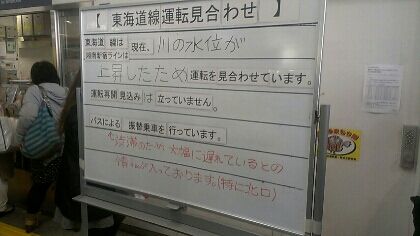 【 東海道線運転見合わせ 】
東海道 線は 現在、川の水位が
湘南新宿ラインは
上昇したため 運転を見合わせています。
運転再開 見込み は 立っていません。
バスによる 振替乗車を 行っています。
渋滞のため 大幅に遅れているとの
情報が入っております。(特に北口)